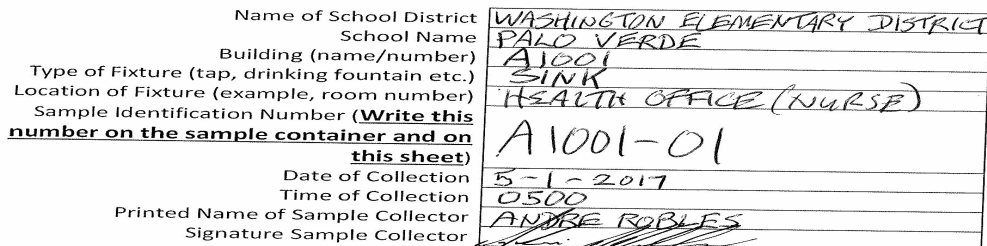 Name of School District WASHINGTON ELEMENTARY DISTRICT
School Name PALO VERDE
Building (name/number) A1001
Type of Fixture (tap, drinking fountain etc.) SINK
Location of Fixture (example, room number) HEALTH OFFICE (NURSE)
Sample Identification Number (Write this
number on the sample container and on
this sheet) A1001-01
Date of Collection 5-1-2017
Time of Collection 0500
Printed Name of Sample Collector ANDRE ROBLES
Signature Sample Collector